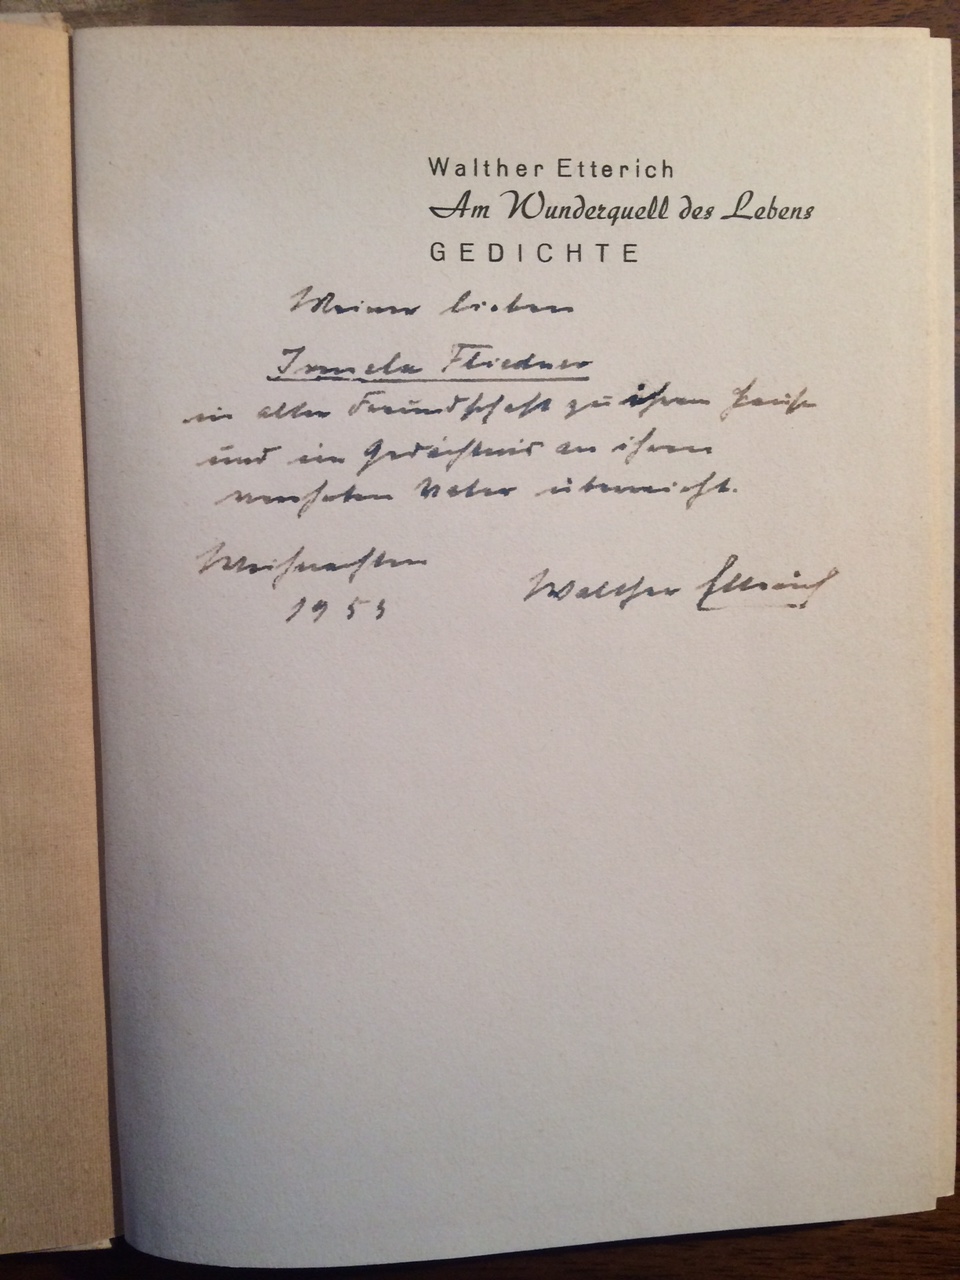 Walther Etterich
Am Wunderquell des Lebens
GEDICHTE
Meiner lieben
Irmela Fliedner
in alter Freundschaft zu ihrem Hause
und im Gedächtnis an ihren
verehrten Vater überreicht.
Weihnachten
1953
Walther Etterich